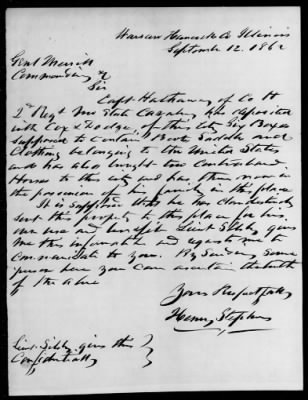 Warsaw Hancock Co Illinois
September 12. 1862
Genl Merrill
Commanding &c
Sir
Capt Hathaway of Co H
2d Regt Mo State Cavalry has deposited
with Cox & Dodge, of this city Six Boxes
supposed to contain Boots Saddle and
Clothing belonging to the United States
and has also brought two Contraband
Horses to this city and has them now in
the possession of his family in this place
It is supposed that he has clandestinely
sent this property to this place for his
own use and benefit Lieut Sibly gives
me this information and requests me to
communicate to you. By Sending Some
person here you can ascertain the truth
of the above
Yours Respectfully
Henry Stephens
Lieut. Sibly gives this
Confidentially